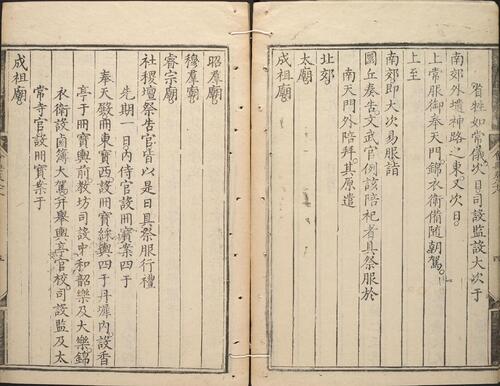 省牲如常儀次日司設監設大次于
南郊外壝神路之東又次日
上常服御奉天門錦衣衛備隨朝駕
上至
南郊即大次易服詣
國丘奏告文武官例該陪祀者具祭服於
南天門外陪拜其原遣
北郊
太廟
成祖廟
昭羣廟
穆羣廟
睿宗廟
社稷壇祭告官皆以是日具祭服行禮
先期一日內侍官設冊寶案四于
奉天殿東寶西設冊寶綵輿四于丹墀內設香
亭于冊寶輿前教坊司設中和韶樂及大樂錦
衣衛設鹵簿大駕并舉輿亭官校司設監及太
常寺官設冊寶案于
成祖廟